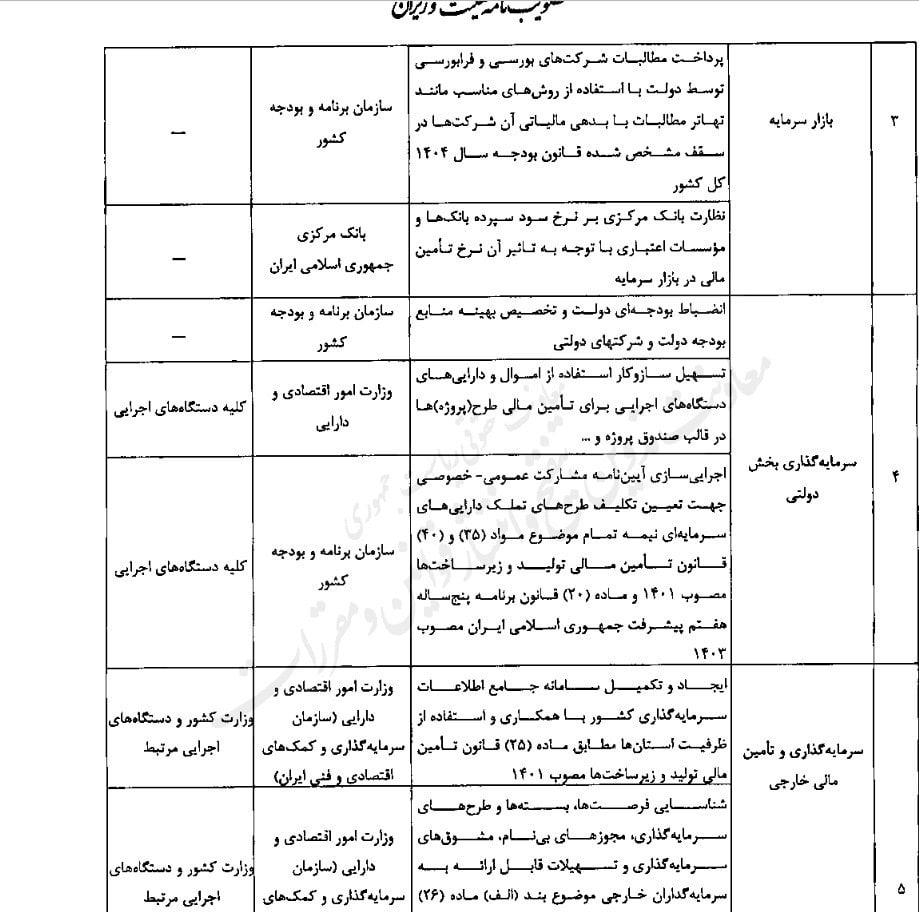 تصویب‌نامه هیئت وزیران
۳
بازار سرمایه
پرداخت مطالبات شرکت‌های بورسی و فرابورسی
توسط دولت با استفاده از روش‌های مناسب مانند
تهاتر مطالبات با بدهی مالیاتی آن شرکت‌ها در
سقف مشخص شده قانون بودجه سال ۱۴۰۴
کل کشور
سازمان برنامه و بودجه
کشور
—
نظارت بانک مرکزی بر نرخ سود سپرده بانک‌ها و
مؤسسات اعتباری با توجه به تاثیر آن نرخ تأمین
مالی در بازار سرمایه
بانک مرکزی
جمهوری اسلامی ایران
—
۴
سرمایه‌گذاری بخش
دولتی
انضباط بودجه‌ای دولت و تخصیص بهینه منابع
بودجه دولت و شرکتهای دولتی
سازمان برنامه و بودجه
کشور
—
تسهیل سازوکار استفاده از اموال و دارایی‌های
دستگاه‌های اجرایی برای تأمین مالی طرح(پروژه)ها
در قالب صندوق پروژه و ...
وزارت امور اقتصادی و
دارایی
کلیه دستگاه‌های اجرایی
اجرایی‌سازی آیین‌نامه مشارکت عمومی- خصوصی
جهت تعیین تکلیف طرح‌های تملک دارایی‌های
سرمایه‌ای نیمه تمام موضوع مواد (۳۵) و (۴۰)
قانون تأمین مالی تولید و زیرساخت‌ها
مصوب ۱۴۰۱ و ماده (۲۰) قانون برنامه پنج‌ساله
هفتم پیشرفت جمهوری اسلامی ایران مصوب
۱۴۰۳
سازمان برنامه و بودجه
کشور
کلیه دستگاه‌های اجرایی
۵
سرمایه‌گذاری و تأمین
مالی خارجی
ایجاد و تکمیل سامانه جامع اطلاعات
سرمایه‌گذاری کشور با همکاری و استفاده از
ظرفیت استان‌ها مطابق ماده (۲۵) قانون تأمین
مالی تولید و زیرساخت‌ها مصوب ۱۴۰۱
وزارت امور اقتصادی و
دارایی (سازمان
سرمایه‌گذاری و کمک‌های
اقتصادی و فنی ایران)
وزارت کشور و دستگاه‌های
اجرایی مرتبط
شناسایی فرصت‌ها، بسته‌ها و طرح‌های
سرمایه‌گذاری، مجوزهای بی‌نام، مشوق‌های
سرمایه‌گذاری و تسهیلات قابل ارائه به
سرمایه‌گذاران خارجی موضوع بند (الف) ماده (۲۶)
وزارت امور اقتصادی و
دارایی (سازمان
سرمایه‌گذاری و کمک‌های
وزارت کشور و دستگاه‌های
اجرایی مرتبط
معاونت حقوقی ریاست جمهوری
معاونت تدوین، تنقیح و انتشار قوانین و مقررات